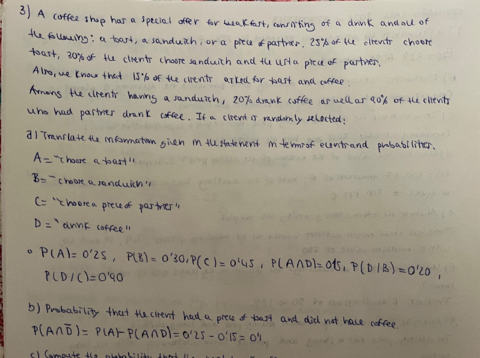 3) A coffee shop has a special offer for breakfast, consisting of a drink and one of
the following: a toast, a sandwich, or a piece of partner. 25% of the clients choose
toast, 30% of the clients choose sandwich and the rest a piece of partner.
Also, we know that 15% of the clients asked for toast and coffee.
Among the clients having a sandwich, 20% drank coffee as well as 90% of the clients
who had partner drank coffee. If a client is randomly selected:
a) Translate the information given in the statement in terms of events and probabilities.
A = "choose a toast"
B = "choose a sandwich"
C = "choose a piece of partner"
D = "drink coffee"
P(A) = 0'25, P(B) = 0'30, P(C) = 0'45, P(A∩D) = 0'15, P(D/B) = 0'20,
P(D/C) = 0'90
b) Probability that the client had a piece of toast and did not have coffee
P(A∩D̄) = P(A) - P(A∩D) = 0'25 - 0'15 = 0'1